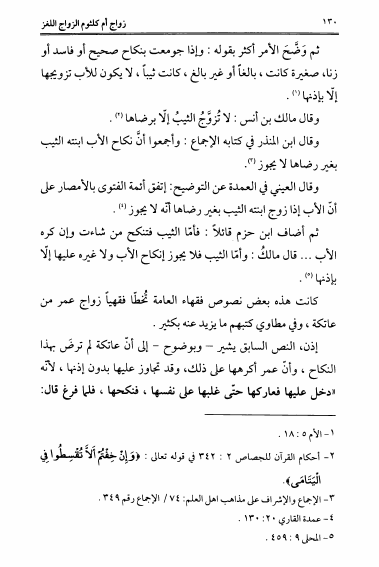 ١٣٠
زواج أم كلثوم الزواج اللغز
ثم وَضَّحَ الأمر أكثر بقوله : وإذا جومعت بنكاح صحيح أو فاسد أو
زنا، صغيرة كانت ، بالغاً أو غير بالغ ، كانت ثيباً ، لا يكون للأب تزويجها
إلّا بإذنها (١) .
وقال مالك بن أنس : لا تُزوَّجُ الثيبُ إلّا برضاها (٢) .
وقال ابن المنذر في كتابه الإجماع : وأجمعوا أنَّ نكاح الأب ابنته الثيب
بغير رضاها لا يجوز (٣).
وقال العيني في العمدة عن التوضيح: إتفق أئمة الفتوى بالأمصار على
أنّ الأب إذا زوج ابنته الثيب بغير رضاها أنّه لا يجوز (٤) .
ثم أضاف ابن حزم قائلاً : فأمّا الثيب فتنكح من شاءت وإن كره
الأب ... قال مالكُ : وأمّا الثيب فلا يجوز إنكاح الأب ولا غيره عليها إلّا
بإذنها (٥) .
كانت هذه بعض نصوص فقهاء العامة تُخطّأ فقهياً زواج عمر من
عاتكة ، وفي مطاوي كتبهم ما يزيد عنه بكثير .
إذن، النص السابق يشير – وبوضوح – إلى أنّ عاتكة لم ترضَ بهذا
النكاح ، وأنّ عمر أكرهها على ذلك، وقد تجاوز عليها بدون إذنها ، لأنّه
«دخل عليها فعاركها حتّى غلبها على نفسها ، فنكحها ، فلما فرغ قال:
١- الأم ٥ : ١٨ .
٢- أحكام القرآن للجصاص ٢ : ٣٤٢ في قوله تعالى : ﴿وَإِنْ خِفْتُمْ أَلاَّ تُقْسِطُوا فِي
الْيَتَامَى﴾.
٣- الإجماع والإشراف على مذاهب اهل العلم: ٧٤ / الإجماع رقم ٣٤٩ .
٤- عمدة القاري ٢٠: ١٣٠ .
٥- المحلى ٩ : ٤٥٩ .